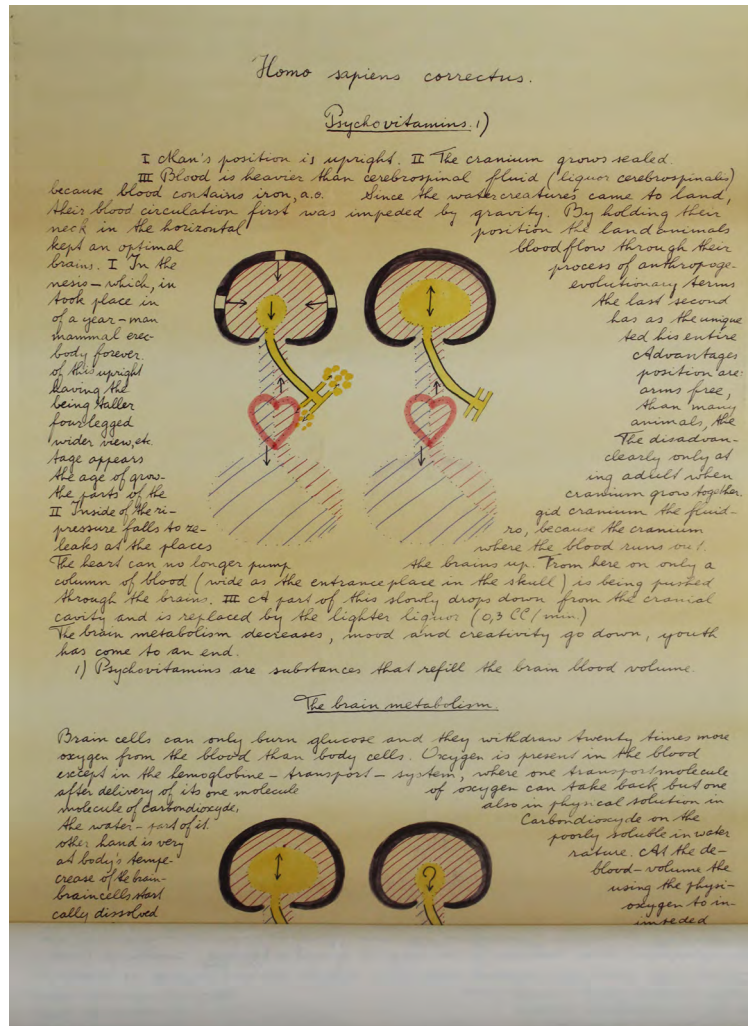 Homo sapiens correctus.
Psychovitamins. 1)
I Man's position is upright. II The cranium grows sealed.
III Blood is heavier than cerebrospinal fluid (liquor cerebrospinalis)
because blood contains iron, a.o. Since the watercreatures came to land,
their blood circulation first was impeded by gravity. By holding their
neck in the horizontal position the land animals
kept an optimal bloodflow through their
brains. I In the process of anthropoge-
nesis – which, in evolutionary terms
took place in the last second
of a year – man has as the unique
mammal erec- ted his entire
body forever. Advantages
of this upright position are:
Having the arms free,
being taller than many
four legged animals, the
wider view, etc. The disadvan-
tage appears clearly only at
the age of grow- ing adult when
the parts of the cranium grows together.
II Inside of the ri- gid cranium the fluid-
pressure falls to ze- ro, because the cranium
leaks at the places where the blood runs out.
The heart can no longer pump the brains up. From here on only a
column of blood (wide as the entranceplace in the skull) is being pushed
through the brains. III A part of this slowly drops down from the cranial
cavity and is replaced by the lighter liquor (0,3 CC/min)
The brain metabolism decreases, mood and creativity go down, youth
has come to an end.
1) Psychovitamins are substances that refill the brain blood volume.
The brain metabolism.
Brain cells can only burn glucose and they withdraw twenty times more
oxygen from the blood than body cells. Oxygen is present in the blood
except in the hemoglobine – transport – system, where one transportmolecule
after delivery of its one molecule of oxygen can take back but one
molecule of carbondioxyde, also in physical solution in
the water – part of it. Carbondioxyde on the
other hand is very poorly soluble in water
at body's tempe- rature. At the de-
crease of the brain- blood – volume the
braincells start using the physi-
cally dissolved oxygen to in-
?